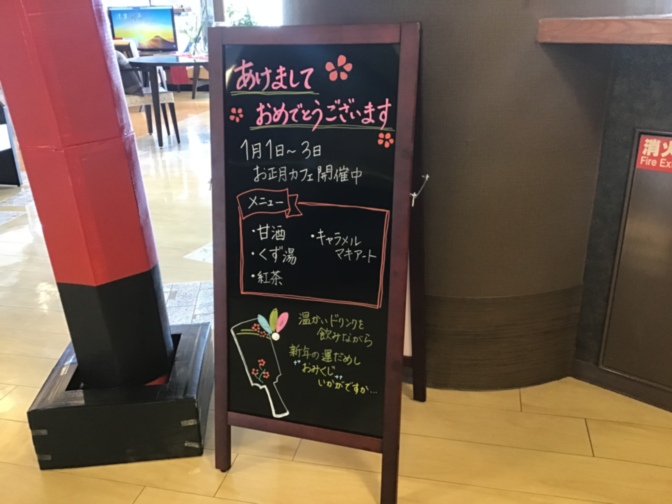 あけまして
おめでとうございます
1月1日～3日
お正月カフェ開催中
メニュー
・甘酒
・くず湯
・紅茶
・キャラメル
マキアート
温かいドリンクを
飲みながら
新年の運だめし
"おみくじ"
いかがですか…
消火
Fire Ex